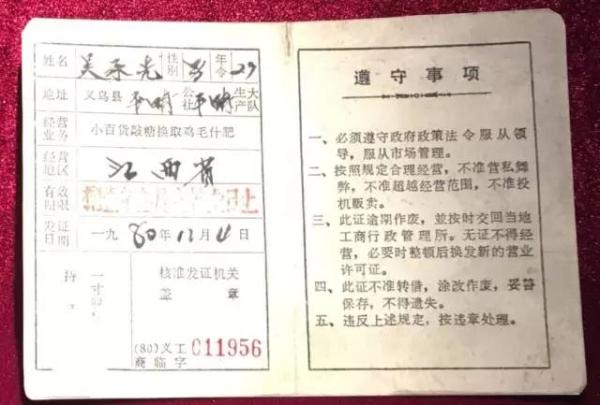 姓名 吴 性别 男 年令 29
地址 义乌县 平畴 公社 平畴 生产大队
经营业务 小百货敲糖换取鸡毛什肥
经营地区 江西省
有效期限
发证日期 一九80年12月4日
持 一寸
核准发证机关
签 章
(80)义工商临字 C11956
遵守事项
一、必须遵守政府政策法令服从领
导，服从市场管理。
二、按照规定合理经营，不准营私舞
弊，不准超越经营范围，不准投
机贩卖。
三、此证逾期作废，並按时交回当地
工商行政管理所。无证不得经
营，必要时整顿后换发新的营业
许可证。
四、此证不准转借，涂改作废，妥善
保存，不得遗失。
五、违反上述规定，按违章处理。